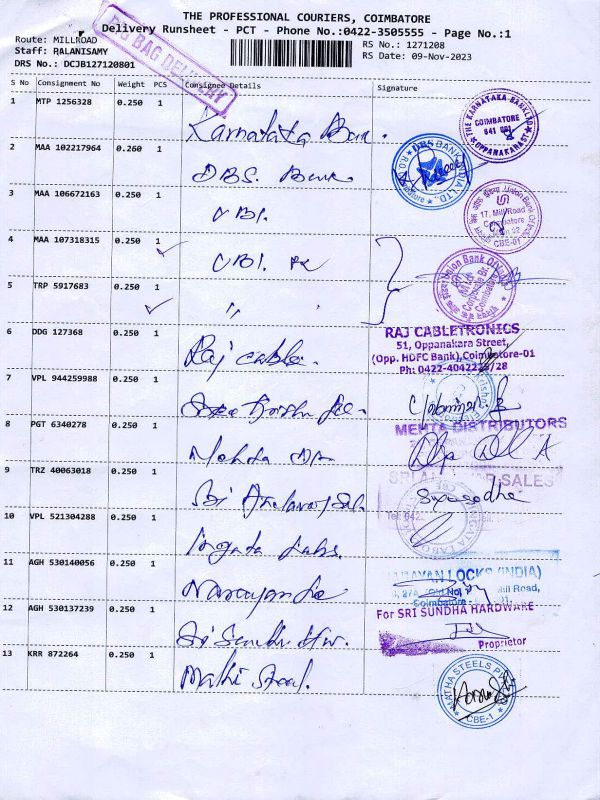 THE PROFESSIONAL COURIERS, COIMBATORE
Delivery Runsheet - PCT - Phone No.:0422-3505555 - Page No.:1
Route: MILLROAD
Staff: RALANISAMY
DRS No.: DCJB127120801
RS No.: 1271208
RS Date: 09-Nov-2023
BAG DELIVERY
S No Consignment No Weight PCS Consignee Details Signature
1 MTP 1256328 0.250 1 Karnataka Ban.
THE KARNATAKA BANK LTD
COIMBATORE
641 001
OPPANAKARA ST
2 MAA 102217964 0.260 1 DBS. Bank
DBS BANK INDIA LTD.
3 MAA 106672163 0.250 1 UBI.
Union Bank Of India
17, Mill Road
Coimbatore
CBE-01
4 MAA 107318315 0.250 1 UBI.
Union Bank Of India
Corporate Br.
Coimbatore
5 TRP 5917683 0.250 1 "
6 DDG 127368 0.250 1 Raj cable.
RAJ CABLETRONICS
51, Oppanakara Street,
(Opp. HDFC Bank),Coimbatore-01
Ph: 0422-4042228/28
7 VPL 944259988 0.250 1
8 PGT 6340278 0.250 1 Mehta
MEHTA DISTRIBUTORS
9 TRZ 40063018 0.250 1 Sri
SALES
10 VPL 521304288 0.250 1 Labs.
11 AGH 530140056 0.250 1 Narayan
NARAYAN LOCKS (INDIA)
Mill Road,
Coimbatore
12 AGH 530137239 0.250 1 Sri Sundha Hw.
For SRI SUNDHA HARDWARE
Proprietor
13 KRR 872264 0.250 1 Mathi Steel.
STEELS
CBE-1